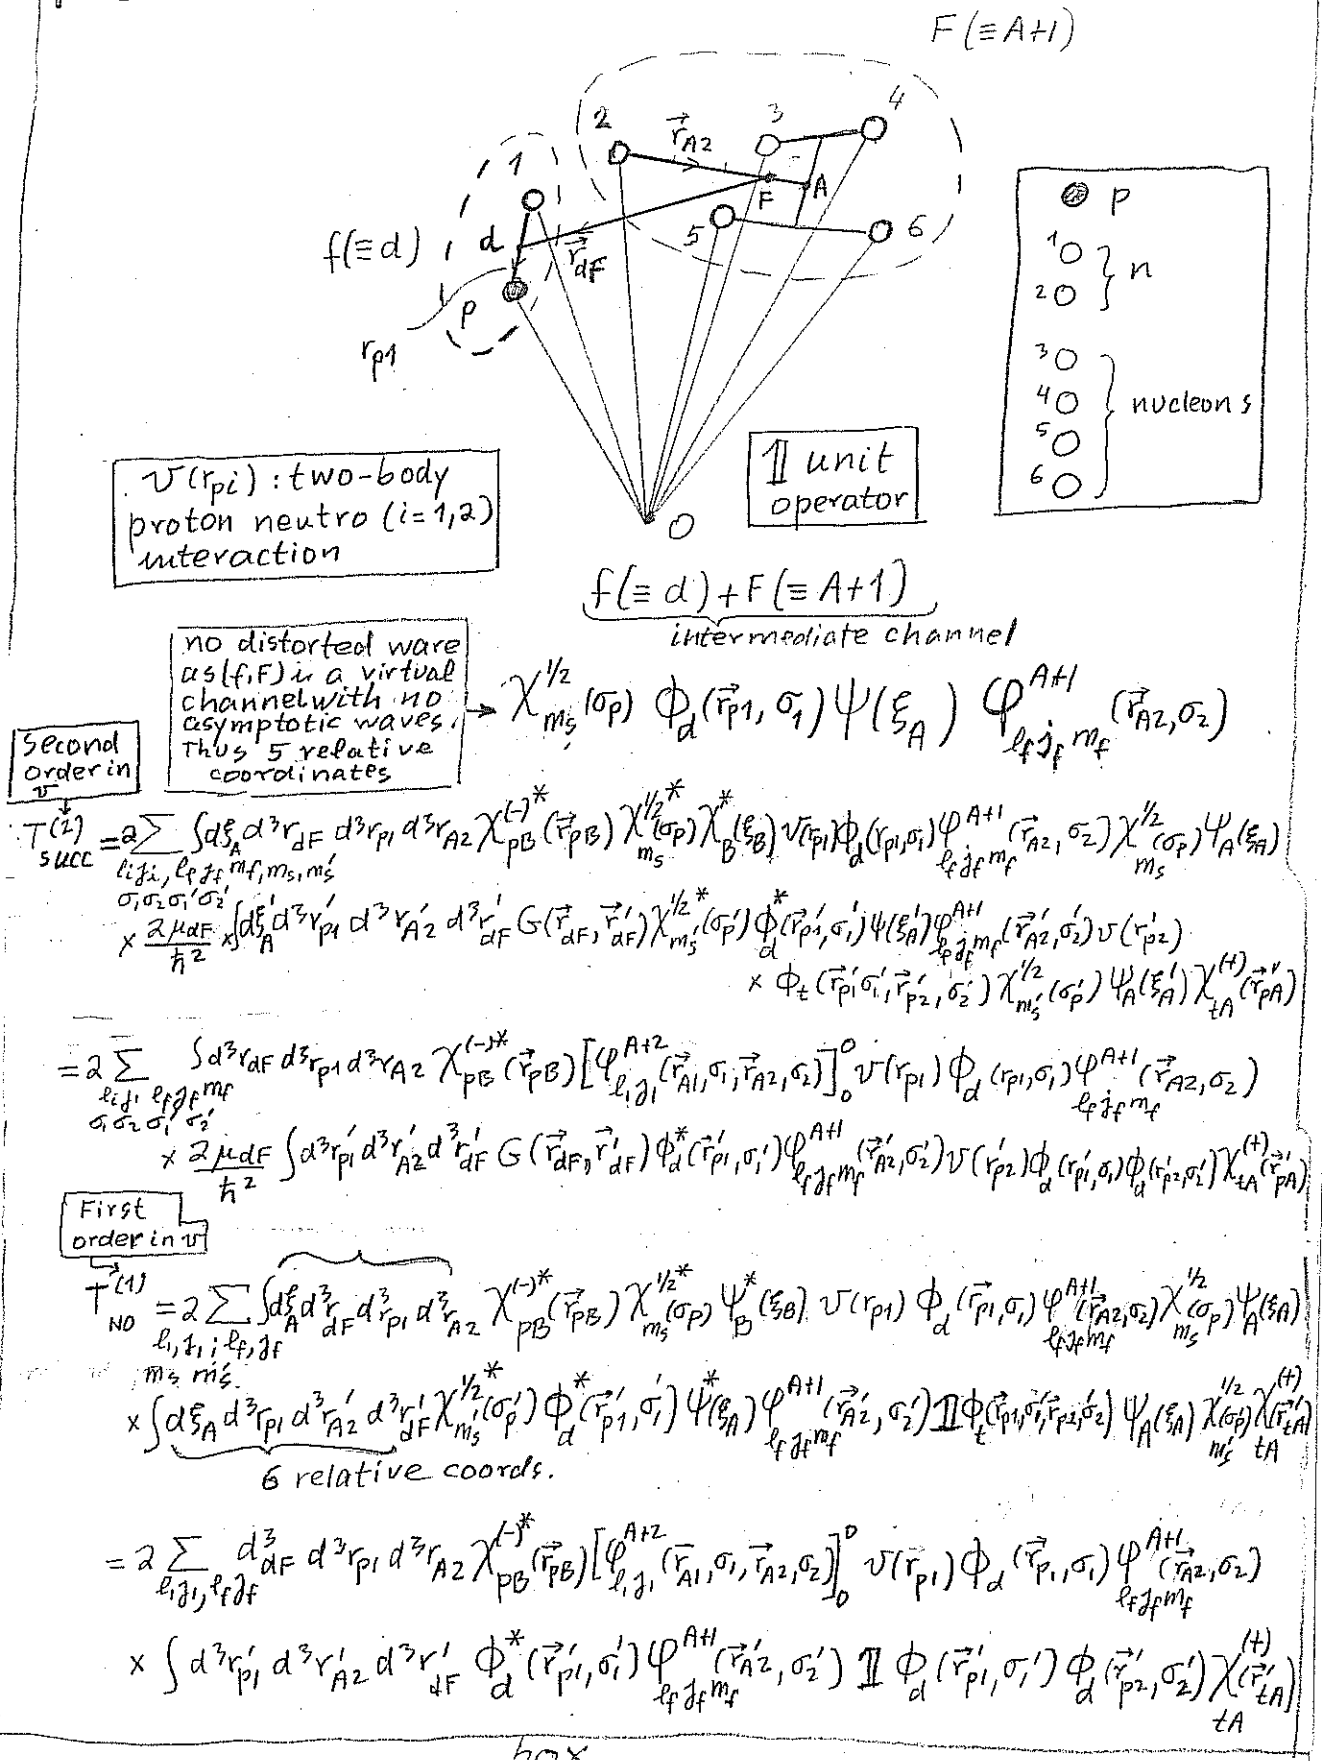 F (≡A+1)
2 3 4
r⃗_{A2}
1 A
F
f(≡d) d 5 6
r⃗_{dF}
p
r_{p1}
O
p
1
2 } n
3
4
5
6 } nucleons
v(r_{pi}) : two-body
proton neutro (i=1,2)
interaction
𝟙 unit
operator
f(≡d)+F(≡A+1)
intermediate channel
no distorted wave
as (f,F) is a virtual
channel with no
asymptotic waves.
Thus 5 relative
coordinates
→ χ^{1/2}_{m_s}(σ_p) ϕ_d(r⃗_{p1}, σ_1) ψ(ξ_A) φ^{A+1}_{l_f j_f m_f}(r⃗_{A2}, σ_2)
second
order in
v
T^{(2)}_{succ} = 2 Σ_{l_i j_i, l_f j_f m_f, m_s, m_s' σ_1 σ_2 σ_1' σ_2'} ∫dξ_A d³r_{dF} d³r_{p1} d³r_{A2} χ^{(-)*}_{pB}(r⃗_{pB}) χ^{1/2*}_{m_s}(σ_p) χ^*_B(ξ_B) v(r_{p1}) ϕ_d(r_{p1},σ_1) φ^{A+1}_{l_f j_f m_f}(r⃗_{A2}, σ_2) χ^{1/2}_{m_s}(σ_p) ψ_A(ξ_A)
× 2μ_{dF}/ħ² × ∫dξ_A' d³r'_{p1} d³r'_{A2} d³r'_{dF} G(r⃗_{dF}, r⃗'_{dF}) χ^{1/2*}_{m_s'}(σ_p') ϕ^*_d(r⃗'_{p1}, σ_1') ψ(ξ_A') φ^{A+1}_{l_f j_f m_f}(r⃗'_{A2}, σ_2') v(r'_{p2})
× ϕ_t(r⃗'_{p1} σ_1', r⃗'_{p2}, σ_2') χ^{1/2}_{m_s'}(σ_p') ψ_A(ξ_A') χ^{(+)}_{tA}(r⃗'_{pA})
= 2 Σ_{l_i j_i l_f j_f m_f σ_1 σ_2 σ_1' σ_2'} ∫d³r_{dF} d³r_{p1} d³r_{A2} χ^{(-)*}_{pB}(r⃗_{pB}) [φ^{A+2}_{l_i j_i}(r⃗_{A1}, σ_1, r⃗_{A2}, σ_2)]^0_0 v(r_{p1}) ϕ_d(r_{p1},σ_1) φ^{A+1}_{l_f j_f m_f}(r⃗_{A2}, σ_2)
× 2μ_{dF}/ħ² ∫d³r'_{p1} d³r'_{A2} d³r'_{dF} G(r⃗_{dF}, r⃗'_{dF}) ϕ^*_d(r⃗'_{p1}, σ_1') φ^{A+1}_{l_f j_f m_f}(r⃗'_{A2}, σ_2') v(r'_{p2}) ϕ_d(r'_{p1}, σ_1) ϕ_d(r'_{p2}, σ_2') χ^{(+)}_{tA}(r⃗'_{pA})
First
order in v
T^{(1)}_{NO} = 2 Σ_{l_1,j_1; l_f,j_f m_s m_s'} ∫dξ_A d³r_{dF} d³r_{p1} d³r_{A2} χ^{(-)*}_{pB}(r⃗_{pB}) χ^{1/2*}_{m_s}(σ_p) ψ^*_B(ξ_B) v(r_{p1}) ϕ_d(r⃗_{p1}, σ_1) φ^{A+1}_{l_f j_f m_f}(r⃗_{A2}, σ_2) χ^{1/2}_{m_s}(σ_p) ψ_A(ξ_A)
× ∫dξ_A d³r_{p1} d³r'_{A2} d³r'_{dF} χ^{1/2*}_{m_s'}(σ_p') ϕ^*_d(r⃗'_{p1}, σ_1') ψ^*(ξ_A) φ^{A+1}_{l_f j_f m_f}(r⃗'_{A2}, σ_2') 𝟙 ϕ_t(r⃗_{p1}, σ_1', r⃗_{p2}, σ_2') ψ_A(ξ_A) χ^{1/2}_{m_s'}(σ_p') χ^{(+)}_{tA}(r⃗'_{tA})
6 relative coords.
= 2 Σ_{l_1 j_1, l_f j_f} d³_{dF} d³r_{p1} d³r_{A2} χ^{(-)*}_{pB}(r⃗_{pB}) [φ^{A+2}_{l_1 j_1}(r⃗_{A1}, σ_1, r⃗_{A2}, σ_2)]^0_0 v(r⃗_{p1}) ϕ_d(r⃗_{p1}, σ_1) φ^{A+1}_{l_f j_f m_f}(r⃗_{A2}, σ_2)
× ∫d³r'_{p1} d³r'_{A2} d³r'_{dF} ϕ^*_d(r⃗'_{p1}, σ_1') φ^{A+1}_{l_f j_f m_f}(r⃗'_{A2}, σ_2') 𝟙 ϕ_d(r⃗'_{p1}, σ_1') ϕ_d(r⃗'_{p2}, σ_2') χ^{(+)}_{tA}(r⃗'_{tA})
box